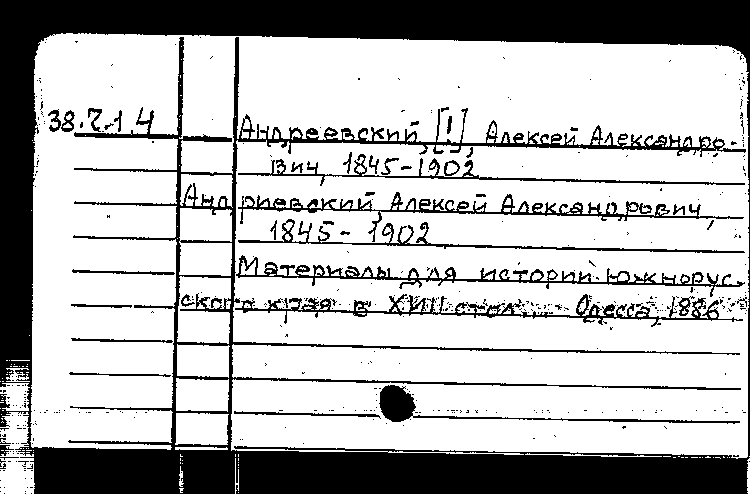 38.7.1.4
Андреевский, [!], Алексей Александро-
вич, 1845-1902
Андриевский, Алексей Александрович,
1845 - 1902
Материалы для истории южнорус-
ского края в XVIII стол... Одесса, 1886